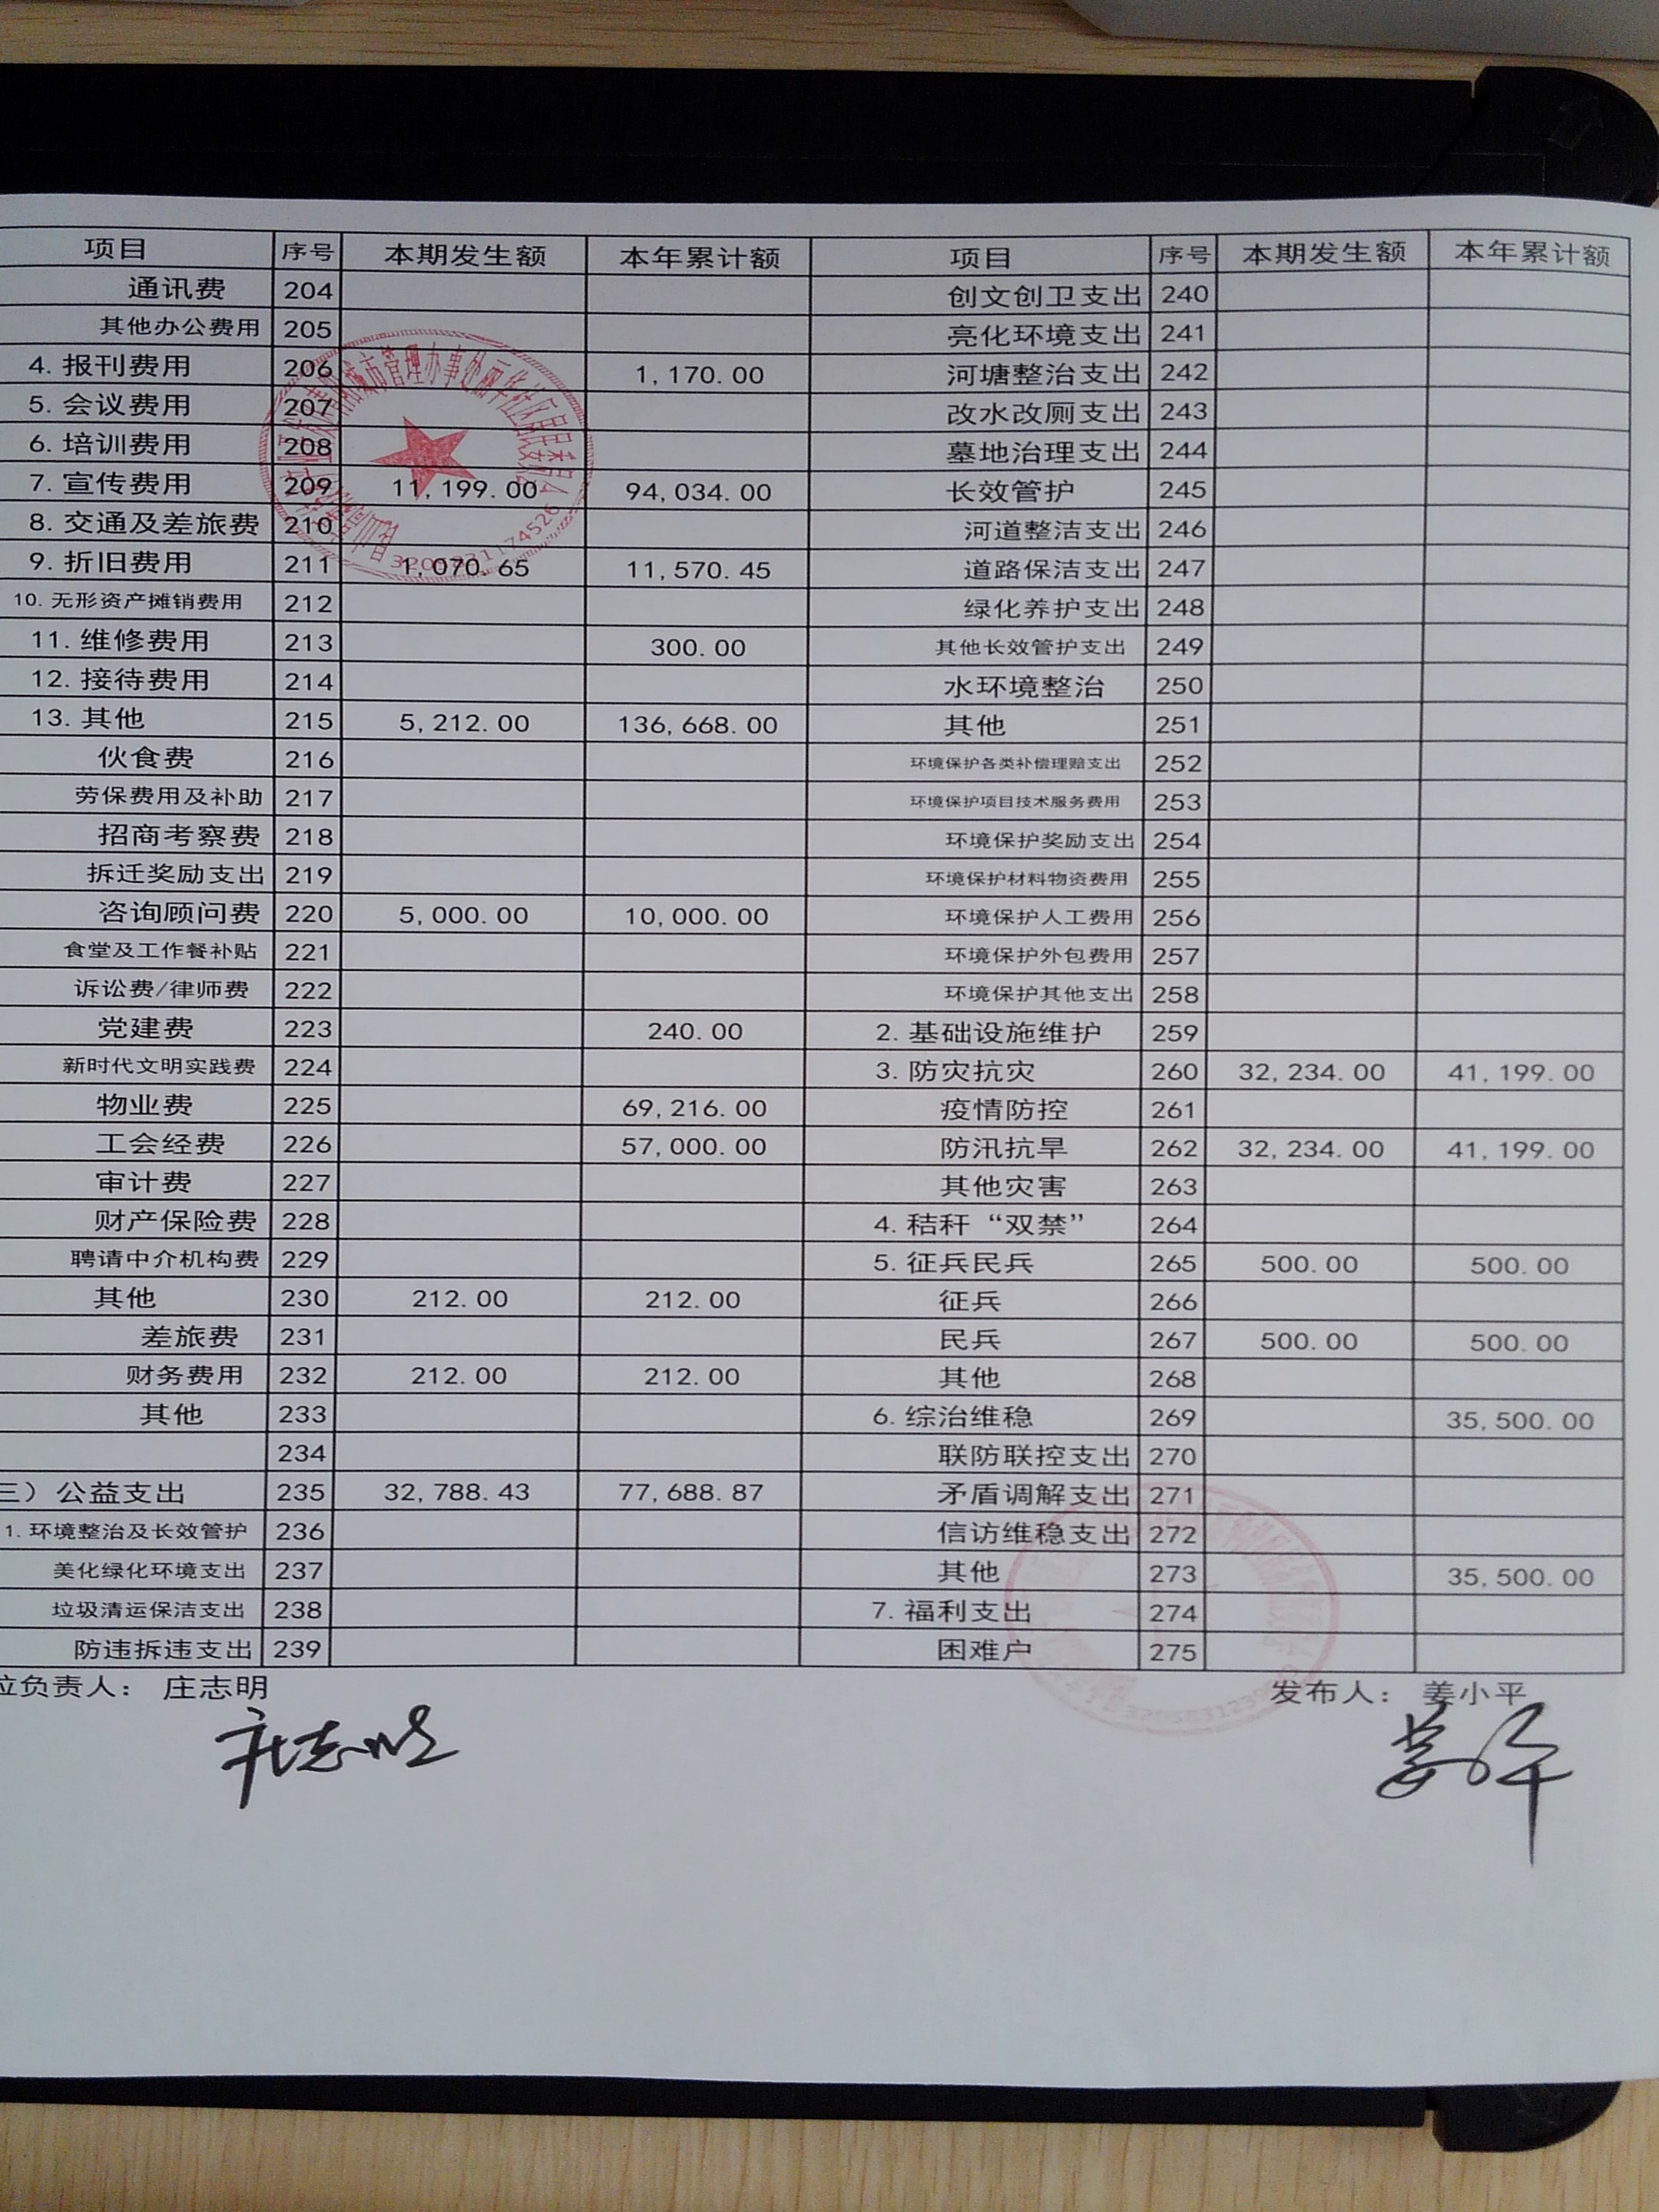 项目 序号 本期发生额 本年累计额 项目 序号 本期发生额 本年累计额
通讯费 204 创文创卫支出 240
其他办公费用 205 亮化环境支出 241
4. 报刊费用 206 1,170.00 河塘整治支出 242
5. 会议费用 207 改水改厕支出 243
6. 培训费用 208 墓地治理支出 244
7. 宣传费用 209 11,199.00 94,034.00 长效管护 245
8. 交通及差旅费 210 河道整洁支出 246
9. 折旧费用 211 1,070.65 11,570.45 道路保洁支出 247
10. 无形资产摊销费用 212 绿化养护支出 248
11. 维修费用 213 300.00 其他长效管护支出 249
12. 接待费用 214 水环境整治 250
13. 其他 215 5,212.00 136,668.00 其他 251
伙食费 216 环境保护各类补偿理赔支出 252
劳保费用及补助 217 环境保护项目技术服务费用 253
招商考察费 218 环境保护奖励支出 254
拆迁奖励支出 219 环境保护材料物资费用 255
咨询顾问费 220 5,000.00 10,000.00 环境保护人工费用 256
食堂及工作餐补贴 221 环境保护外包费用 257
诉讼费/律师费 222 环境保护其他支出 258
党建费 223 240.00 2. 基础设施维护 259
新时代文明实践费 224 3. 防灾抗灾 260 32,234.00 41,199.00
物业费 225 69,216.00 疫情防控 261
工会经费 226 57,000.00 防汛抗旱 262 32,234.00 41,199.00
审计费 227 其他灾害 263
财产保险费 228 4. 秸秆“双禁” 264
聘请中介机构费 229 5. 征兵民兵 265 500.00 500.00
其他 230 212.00 212.00 征兵 266
差旅费 231 民兵 267 500.00 500.00
财务费用 232 212.00 212.00 其他 268
其他 233 6. 综治维稳 269 35,500.00
234 联防联控支出 270
三）公益支出 235 32,788.43 77,688.87 矛盾调解支出 271
1. 环境整治及长效管护 236 信访维稳支出 272
美化绿化环境支出 237 其他 273 35,500.00
垃圾清运保洁支出 238 7. 福利支出 274
防违拆违支出 239 困难户 275
位负责人： 庄志明 发布人： 姜小平
庄志明 姜小平